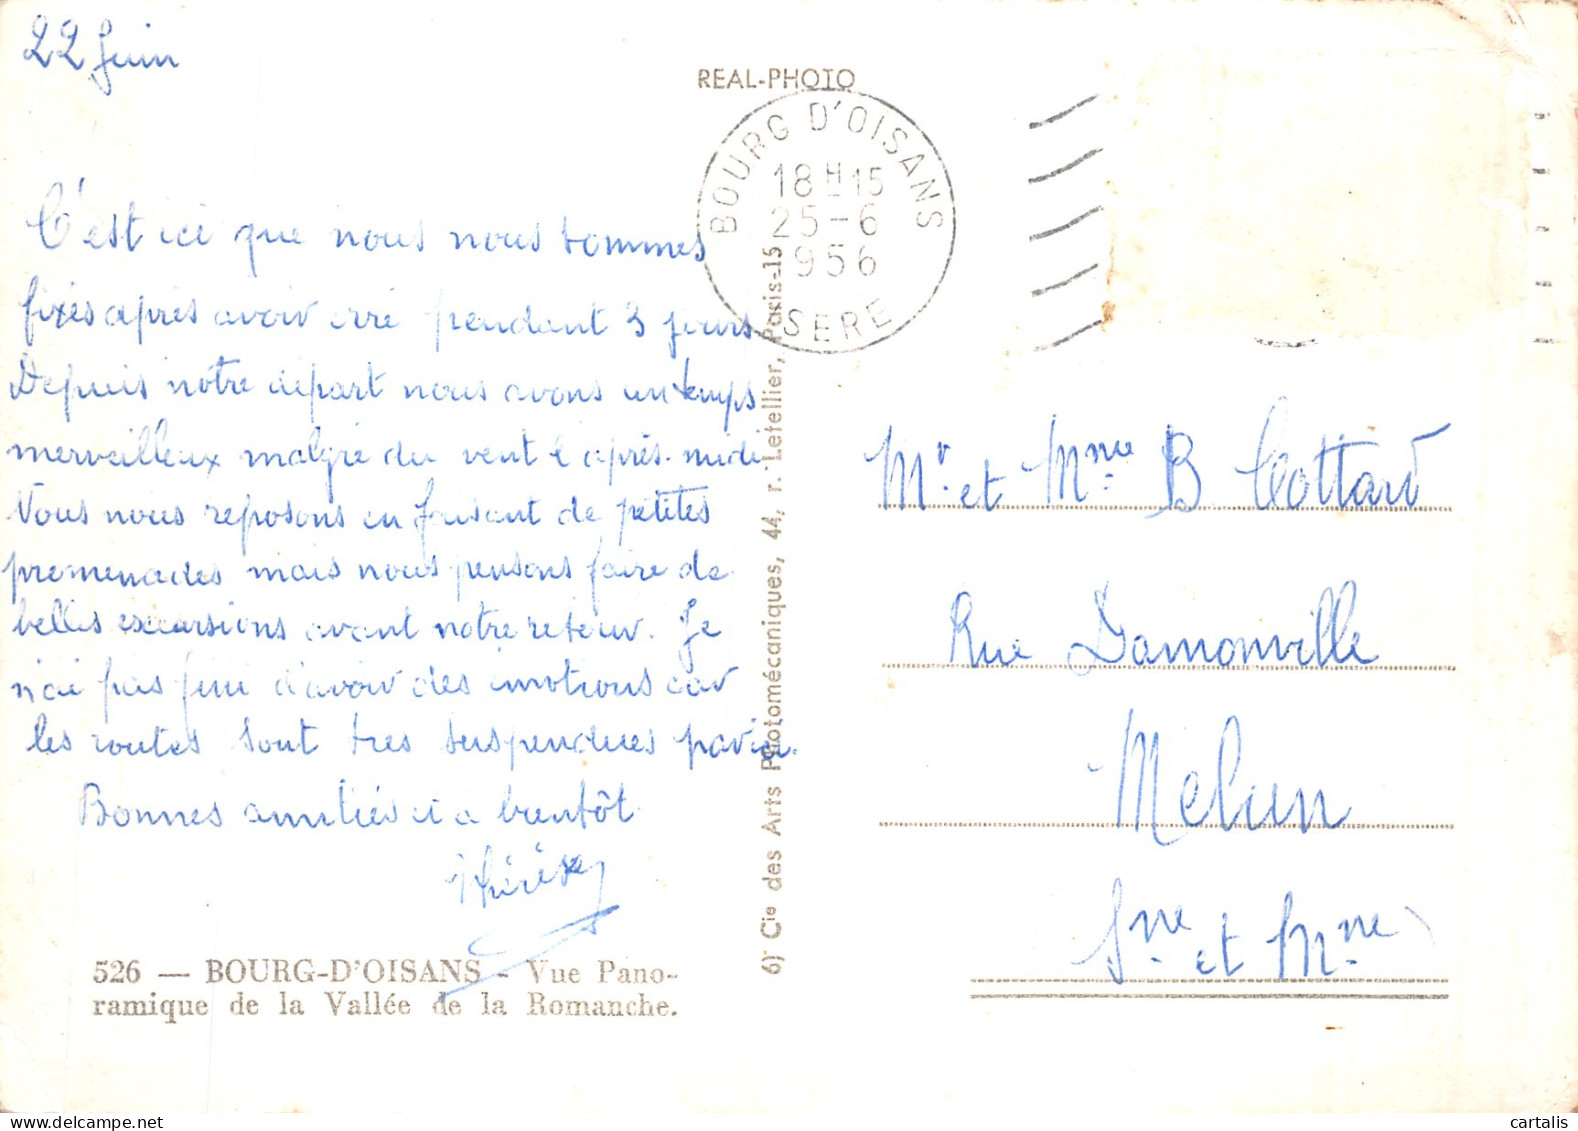 22 Juin
C'est ici que nous nous sommes
fixés après avoir erré pendant 3 jours
Depuis notre départ nous avons un temps
merveilleux malgré du vent l'après-midi
Nous nous reposons en faisant de petites
promenades mais nous pensons faire de
belles excursions avant notre retour. Je
n'ai pas fini d'avoir des émotions car
les routes sont très suspendues par ici.
Bonnes amitiés et a bientôt
Thérèse
526 — BOURG-D'OISANS - Vue Pano-
ramique de la Vallée de la Romanche.
REAL-PHOTO
BOURG D'OISANS
18H15
25-6
1956
ISERE
6) Cie des Arts Photomécaniques, 44, r. Letellier, Paris-15
Mr. et Mme B Cottard
Rue Damonville
Melun
Sne et Mne
cartalis